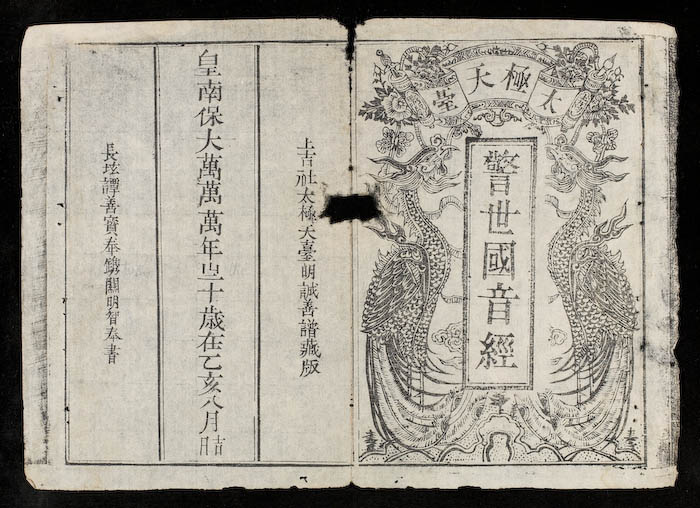 太極天臺
警世國音經
上吉社太極天臺明誠善譜藏版
皇南保大萬萬萬年㞢十歲在乙亥八月吉日
長玹譚善寶奉鐫關明智奉書